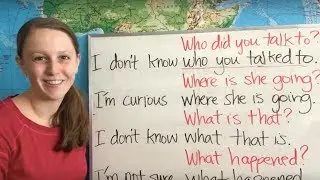 Who did you talk to?
I don't know who you talked to.
Where is she going?
I'm curious where she is going.
What is that?
I don't know what that is.
What happened?
I'm not sure what happened